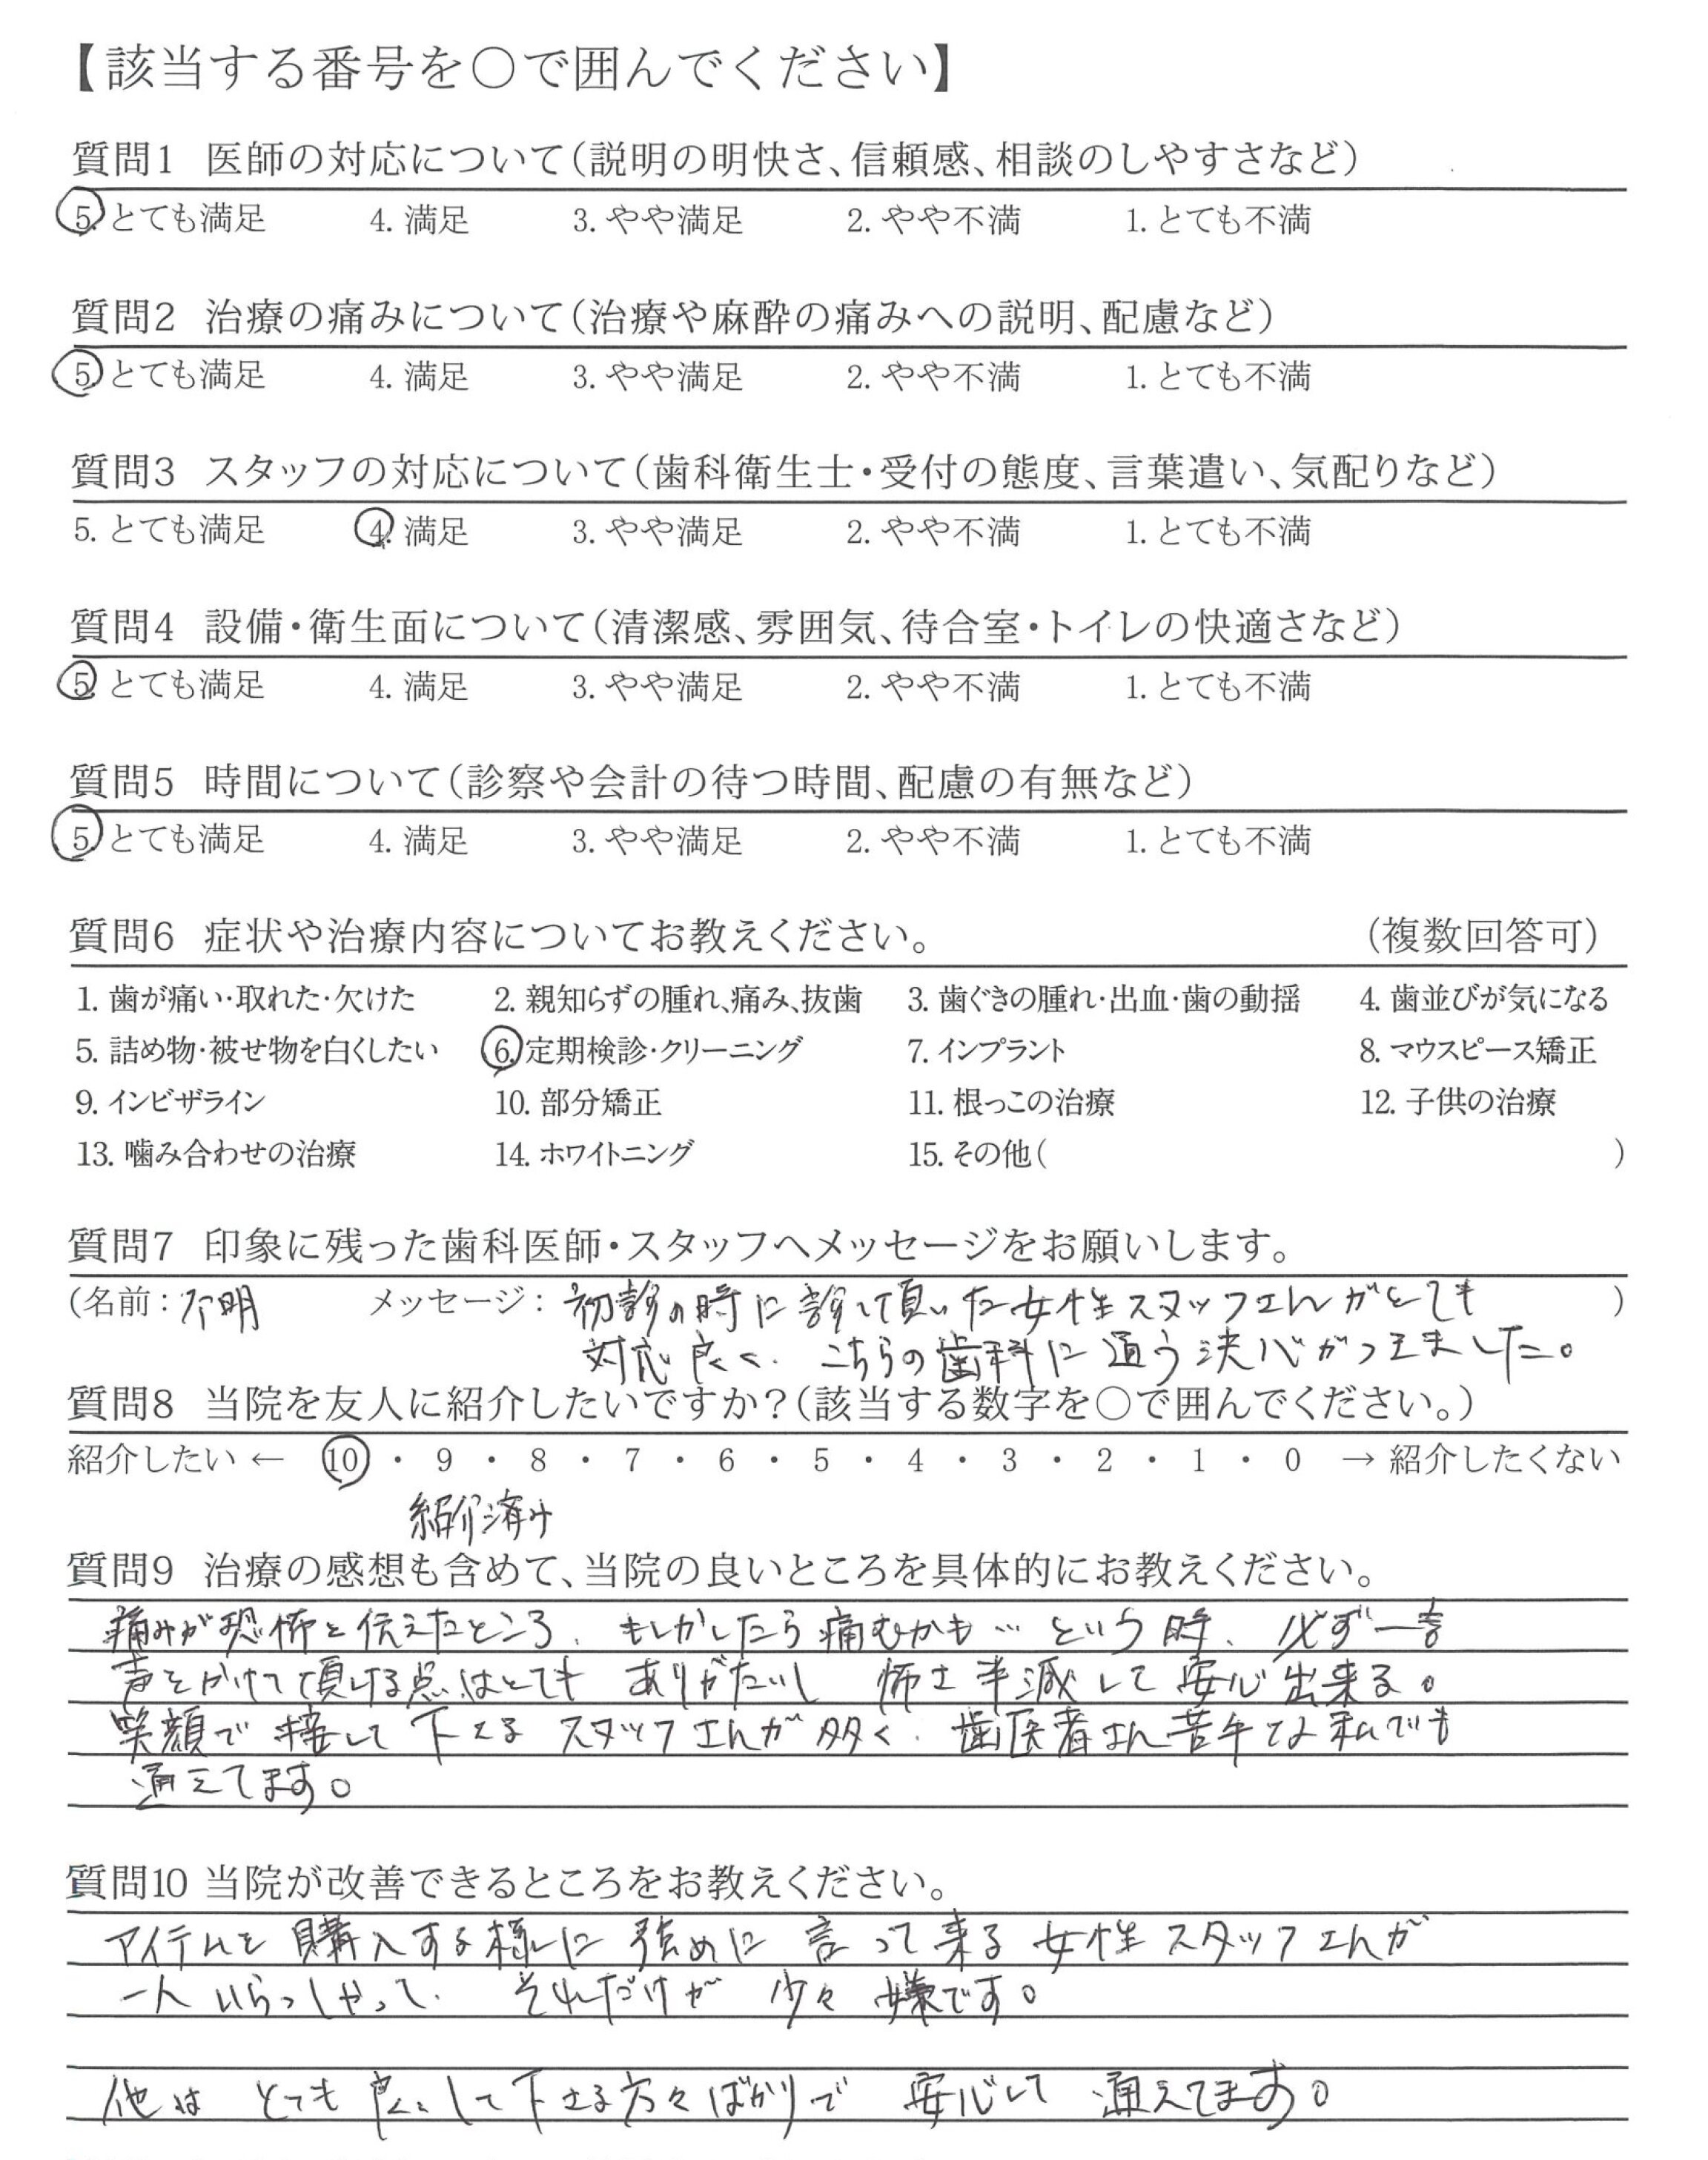 【該当する番号を〇で囲んでください】
質問1 医師の対応について(説明の明快さ、信頼感、相談のしやすさなど)
5. とても満足 4. 満足 3. やや満足 2. やや不満 1. とても不満
質問2 治療の痛みについて(治療や麻酔の痛みへの説明、配慮など)
5. とても満足 4. 満足 3. やや満足 2. やや不満 1. とても不満
質問3 スタッフの対応について(歯科衛生士・受付の態度、言葉遣い、気配りなど)
5. とても満足 4. 満足 3. やや満足 2. やや不満 1. とても不満
質問4 設備・衛生面について(清潔感、雰囲気、待合室・トイレの快適さなど)
5. とても満足 4. 満足 3. やや満足 2. やや不満 1. とても不満
質問5 時間について(診察や会計の待つ時間、配慮の有無など)
5. とても満足 4. 満足 3. やや満足 2. やや不満 1. とても不満
質問6 症状や治療内容についてお教えください。 (複数回答可)
1. 歯が痛い・取れた・欠けた 2. 親知らずの腫れ、痛み、抜歯 3. 歯ぐきの腫れ・出血・歯の動揺 4. 歯並びが気になる
5. 詰め物・被せ物を白くしたい 6. 定期検診・クリーニング 7. インプラント 8. マウスピース矯正
9. インビザライン 10. 部分矯正 11. 根っこの治療 12. 子供の治療
13. 噛み合わせの治療 14. ホワイトニング 15. その他( )
質問7 印象に残った歯科医師・スタッフへメッセージをお願いします。
(名前:不明 メッセージ:初診の時に診て頂いた女性スタッフさんがとても )
対応良く、こちらの歯科に通う決心がつきました。
質問8 当院を友人に紹介したいですか?(該当する数字を〇で囲んでください。)
紹介したい ← 10 ・ 9 ・ 8 ・ 7 ・ 6 ・ 5 ・ 4 ・ 3 ・ 2 ・ 1 ・ 0 → 紹介したくない
紹介済み
質問9 治療の感想も含めて、当院の良いところを具体的にお教えください。
痛みが恐怖と伝えたところ、もしかしたら痛むかも…という時、必ず一言
声をかけて頂ける点はとてもありがたいし 怖さ半減して安心出来る。
笑顔で接して下さるスタッフさんが多く、歯医者さん苦手な私でも
通えてます。
質問10 当院が改善できるところをお教えください。
アイテムを購入する様に強めに言って来る女性スタッフさんが
一人いらっしゃって、それだけが少々嫌です。
他はとても良くして下さる方々ばかりで 安心して通えてます。